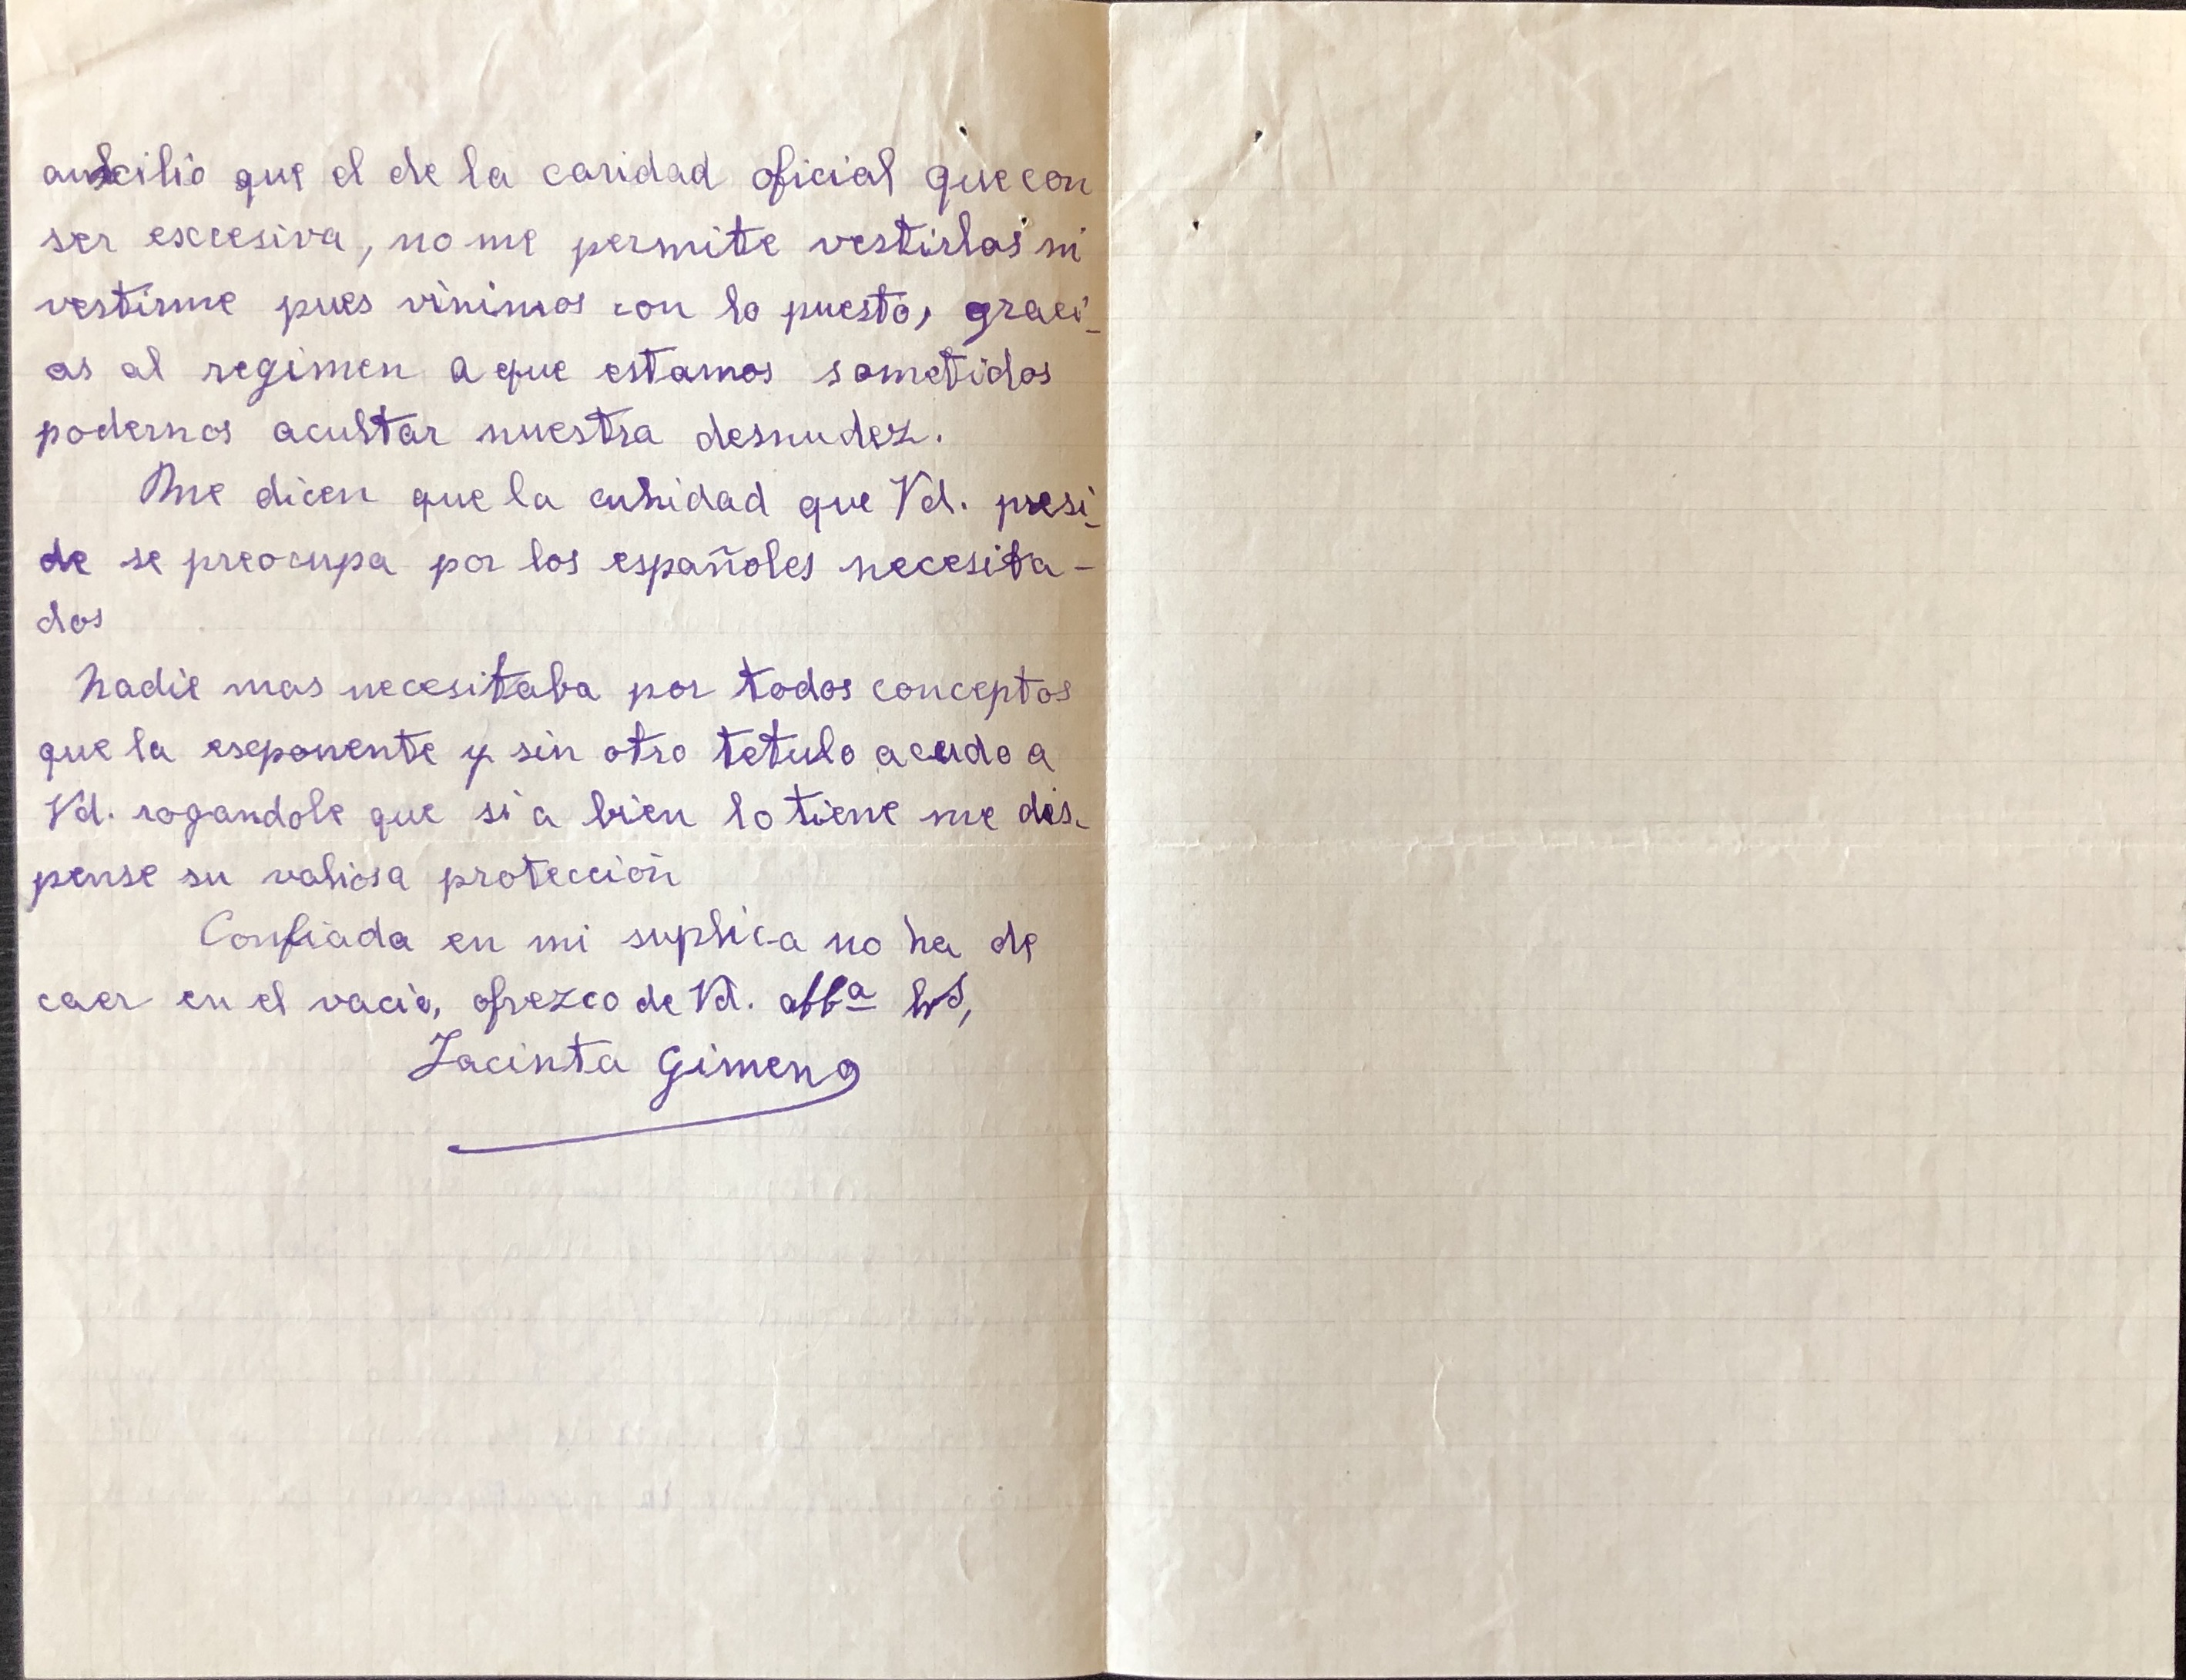 auxcilio que el de la caridad oficial que con
ser excesiva, no me permite vestirlas ni
vestirme pues vinimos con lo puesto, graci-
as al regimen a que estamos sometidos
podemos acultar nuestra desnudez.
Me dicen que la que Vd. presi-
de se preocupa por los españoles necesita-
dos
Nadie mas necesitaba por todos conceptos
que la esponente y sin otro tetulo acudo a
Vd. rogandole que si a bien lo tiene me dis-
pense su valiosa protección
Confiada en mi suplica no ha de
caer en el vacio, ofrezco de Vd. affª
Jacinta Gimeno